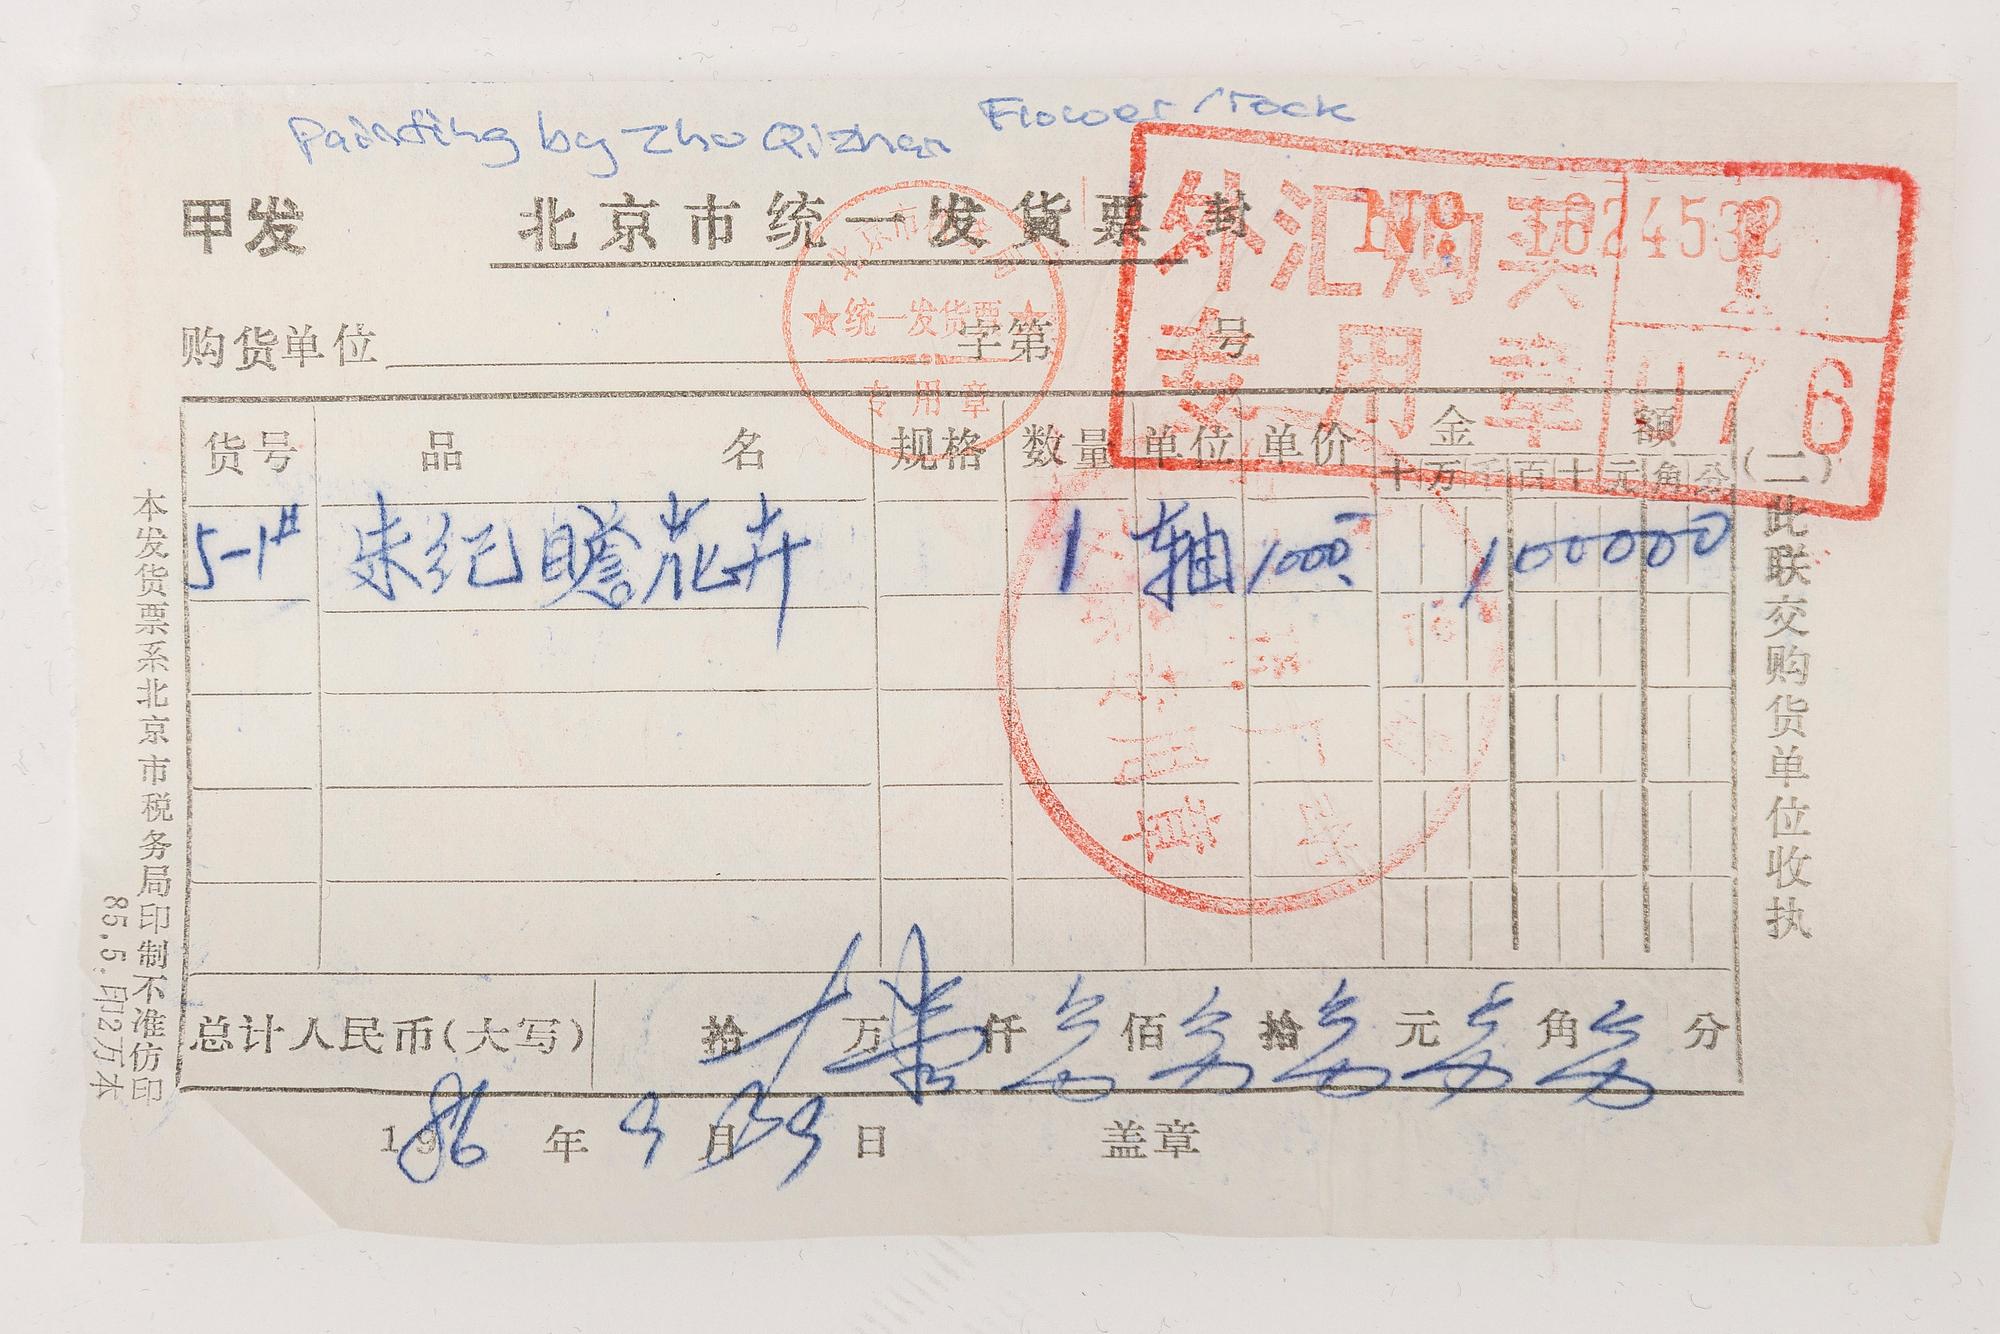 Painting by Zhu Qizhan Flower/rock
甲发 北京市统一发货票 封 № 1024532
外汇购买 1
专用章 076
统一发货票
专用章
购货单位 字第 号
货号 品名 规格 数量 单位 单价 金额
十万千百十元角分
5-1# 朱纪瞻花卉 1 轴 1000 100000
总计人民币(大写) 拾 万 仟 佰 拾 元 角 分
1986年9月29日 盖章
(二)此联交购货单位收执
本发货票系北京市税务局印制不准仿印
85.5.印2万本